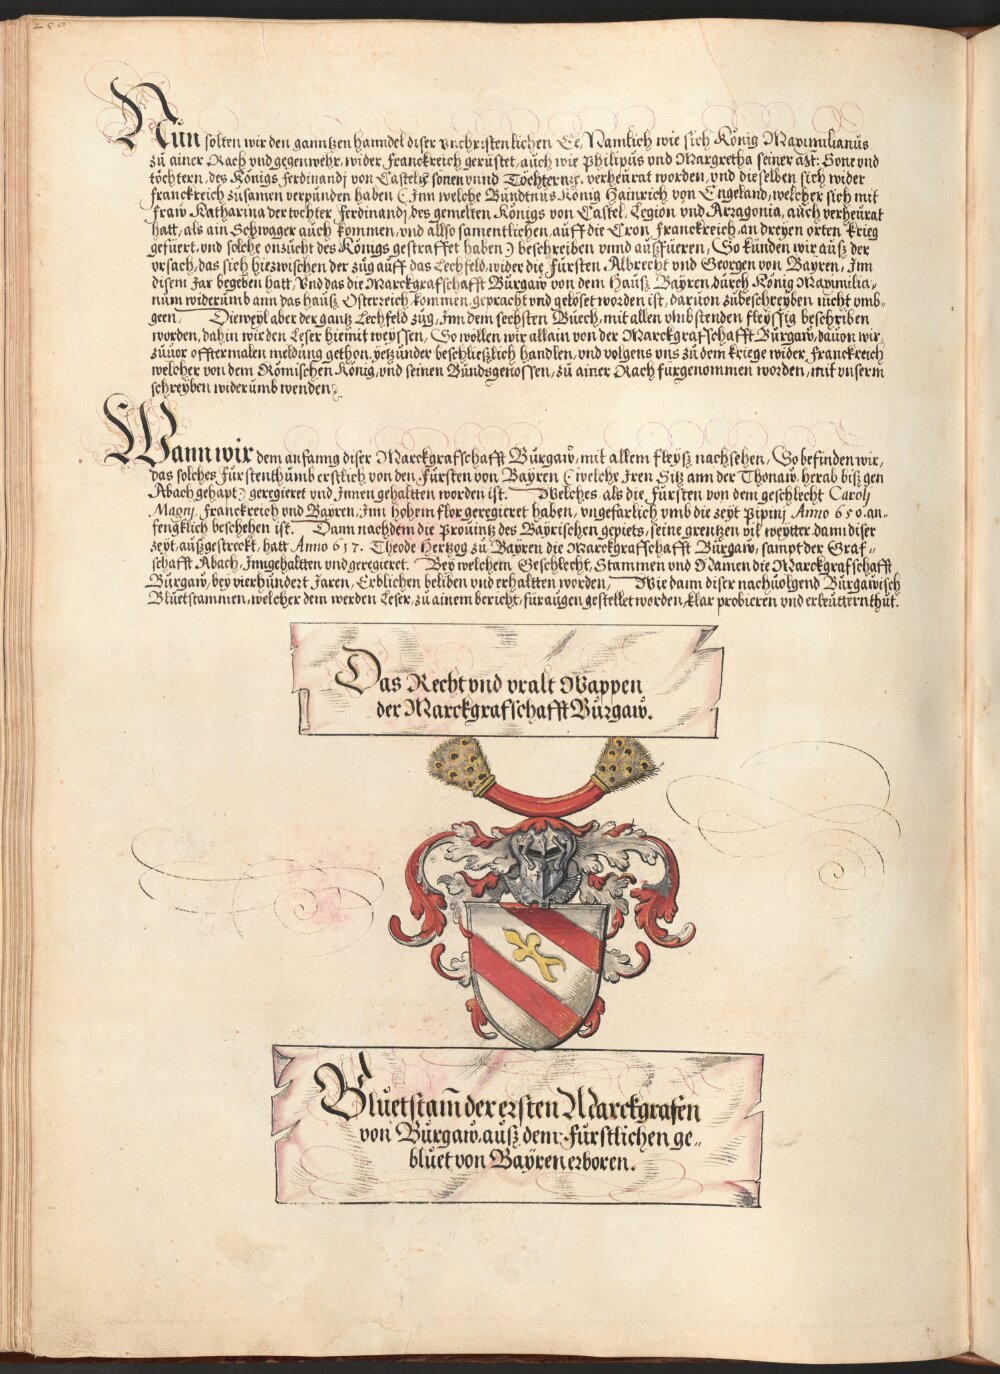 Nun solten wir den ganntzen hanndel diser vnchristenlichen Ee, Namlich wie sich König Maximilianus
zů ainer Rach vnd gegenwehr, wider Franckreich gerüstet, auch wie Philipus vnd Margretha seiner Mt: Sone vnd
töchtern, des Königs Ferdinandj von Castel sonen vnnd Töchtern verheurat worden, vnd dieselben sich wider
Franckreich zusamen verpünden haben (Inn welche Bündtnus König Hainrich von Engeland, welcher sich mit
fraw Katharina der tochter Ferdinandj, des gemelten Königs von Castel, Legion vnd Arragonia, auch verheurat
hatt, als ain Schwager auch kommen, vnd allso samentlichen, auff die Cron Franckreich, an dreyen orten krieg
gefüert, vnd solche onzucht des Königs gestraffet haben) beschreiben vnnd außfüeren, So künden wir auß der
vrsach, das sich hiezwischen der zug auff das Lechfeld, wider die Fürsten Albrecht vnd Georgen von Bayren, Inn
disem Jar begeben hatt, Vnd das die Marckgrafschafft Burgaw von dem Hauß Bayren durch König Maximilia-
num widerumb ann das hauß Osterreich kommen, gepracht vnd gelöset worden ist, daruon zubeschreyben nicht vmb-
geen, Dieweyl aber der gantz Lechfeld zug, Inn dem sechsten Buech, mit allen vmbstenden fleyssig beschriben
worden, dahin wir den Leser hiemit weyssen, So wöllen wir allain von der Marckgrafschafft Burgaw, dauon wir
zuuor offtermalen meldung gethon, yetzunder beschließlich handlen, vnd volgens vns zu dem kriege wider Franckreich
welcher von dem Römischen König, vnd seinen Bundsgenossen, zu ainer Rach furgenommen worden, mit vnserm
schreyben widerumb wenden.
Wann wir dem anfanng diser Marckgrafschafft Burgaw, mit allem fleyß nachsehen, So befinden wir,
das solches Fürstenthumb erstlich von den Fürsten von Bayren (welche Iren Sitz ann der Thonaw herab biß gen
Abach gehapt) geregieret vnd Innen gehaltten worden ist. Welches als die Fürsten von dem geschlecht Carolj
Magnj, Franckreich vnd Bayren, Inn hohem flor geregieret haben, vngefarlich vmb die zeyt Pipinj Anno 650. an-
fengklich beschehen ist. Dann nachdem die Prouintz des Bayrischen gepiets, seine grentzen vil weytter dann diser
zeyt, außgestreckt, hatt Anno 617. Theode Hertzog zu Bayren die Marckgrafschafft Burgaw, sampt der Graf-
schafft Abach, Inngehaltten vnd geregieret. Bey welchem Geschlecht, Stammen vnd Namen die Marckgrafschafft
Burgaw, bey vierhundert Jaren, Erblichen beliben vnd erhaltten worden, Wie dann diser nachuolgend Burgawisch
Bluetstammen, welcher dem werden Leser, zu ainem bericht, für augen gestellet worden, klar probieren vnd erleutternn thut.
Das Recht vnd vralt Wappen
der Marckgrafschafft Burgaw.
Bluetstam̅ der ersten Marckgrafen
von Burgaw, auß dem Fürstlichen ge-
bluet von Bayren erboren.